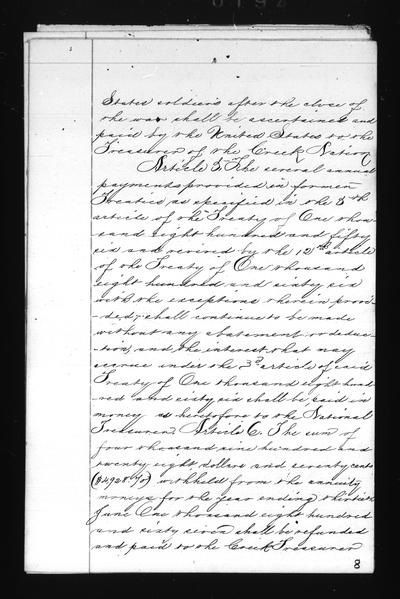 States soldiers after the close of
the war shall be ascertained and
paid by the United States to the
Treasurer of the Creek Nation
Article 5. The several annual
payments provided in former
Treaties as specified in the 5th
article of the Treaty of One thou
sand eight hundred and fifty
six and revived by the 12th article
of the Treaty of One thousand
eight hundred and sixty six
with the exceptions therein provi
-ded, shall continue to be made
without any abatement or deduc
-tion, and the interest that may
accrue under the 3d article of said
Treaty of One thousand eight hund
-red and sixty six shall be paid in
money as heretofore to the National
Treasurer. Article 6. The sum of
four thousand nine hundred and
twenty eight dollars and seventy cents
($4928.70) withheld from the annuity
moneys for the year ending thirtieth
June One thousand eight hundred
and sixty seven shall be refunded
and paid to the Creek Treasurer
8